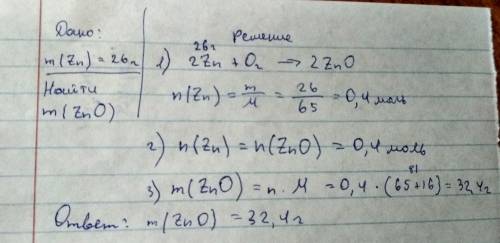 Дано:
m(Zn) = 26г
Найти
m(ZnO)
Решение
26г
1) 2Zn + O₂ → 2ZnO
n(Zn) = m/M = 26/65 = 0,4 моль
2) n(Zn) = n(ZnO) = 0,4 моль
81
3) m(ZnO) = n · M = 0,4 · (65+16) = 32,4г
Ответ: m(ZnO) = 32,4г